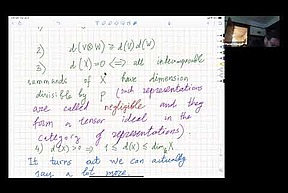 2) d(V⊗W) ≥ d(V)d(W)
3) d(X)=0 ⟺ all indecomposable
summands of X have dimension
divisible by p (such representations
are called negligible and they
form a tensor ideal in the
category of representations).
4) d(X)>0 ⟹ 1 ≤ d(X) ≤ dim_k X
It turns out we can actually
say a lot more.